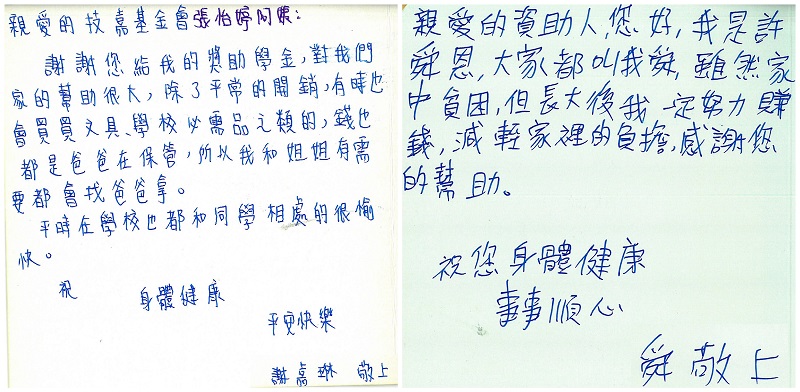 親愛的技嘉基金會張怡婷阿姨：
謝謝您給我的獎助學金，對我們
家的幫助很大，除了平常的開銷，有時也
會買買文具、學校必需品之類的，錢也
都是爸爸在保管，所以我和姐姐有需
要都會找爸爸拿。
平時在學校也都和同學相處的很愉
快。
祝
身體健康
平安快樂
謝嘉琳 敬上
親愛的資助人,您好,我是許
舜恩,大家都叫我舜,雖然家
中貧困,但長大後我一定努力賺
錢,減輕家裡的負擔,感謝您
的幫助。
祝您身體健康
事事順心
舜敬上